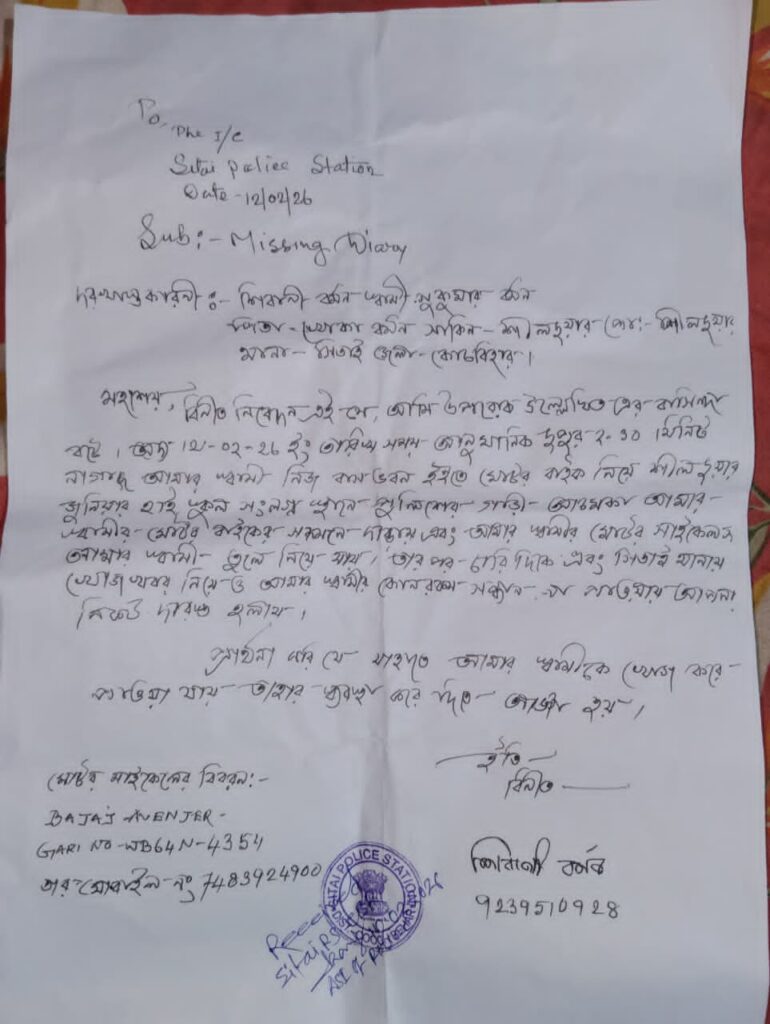 To,
The I/C
Sitai Police Station
Date -12/02/26
Sub:- Missing Diary
দরখাস্তকারিনী :- শিবানী বর্মন স্বামী সুকুমার বর্মন
পিতা - খোকা বর্মন সাকিন - শীলদুয়ার পো:- শীলদুয়ার
থানা - সিতাই জেলা - কোচবিহার।
মহাশয়, বিনীত নিবেদন এই যে, আমি উপরোক্ত উল্লেখিত এর বাসিন্দা
বটে। অদ্য 12-02-26 ইং তারিখ সময় আনুমানিক দুপুর 2-30 মিনিট
নাগাদ আমার স্বামী নিজ বাস ভবন হইতে মোটর বাইক নিয়ে শীলদুয়ার
জুনিয়ার হাই স্কুল সংলগ্ন স্থানে পুলিশের গাড়ী আচমকা আমার
স্বামীর মোটর বাইকের সামনে দাঁড়ায় এবং আমার স্বামীর মোটর সাইকেল
আমার স্বামী তুলে নিয়ে যায়। তার পর চারি দিকে এবং সিতাই থানায়
খোঁজ খবর নিয়েও আমার স্বামীর কোনরকম সন্ধান না পাওয়ায় আপনার
নিকট দারস্ত হলাম।
প্রার্থনা করি যে যাহাতে আমার স্বামীকে খোঁজ করে
পাওয়া যায় তাহার ব্যবস্থা করে দিতে আজ্ঞা হয়।
ইতি
বিনীত
মোটর সাইকেলের বিবরন:-
BAJAJ AVENJER-
GARI NO-WB64N-4354
তার মোবাইল নং 7483924900
শিবানী বর্মন
9239510928
SITAI POLICE STATION
DIST-COOCHBEHAR
Received
Sitai P.S
ASI of Police